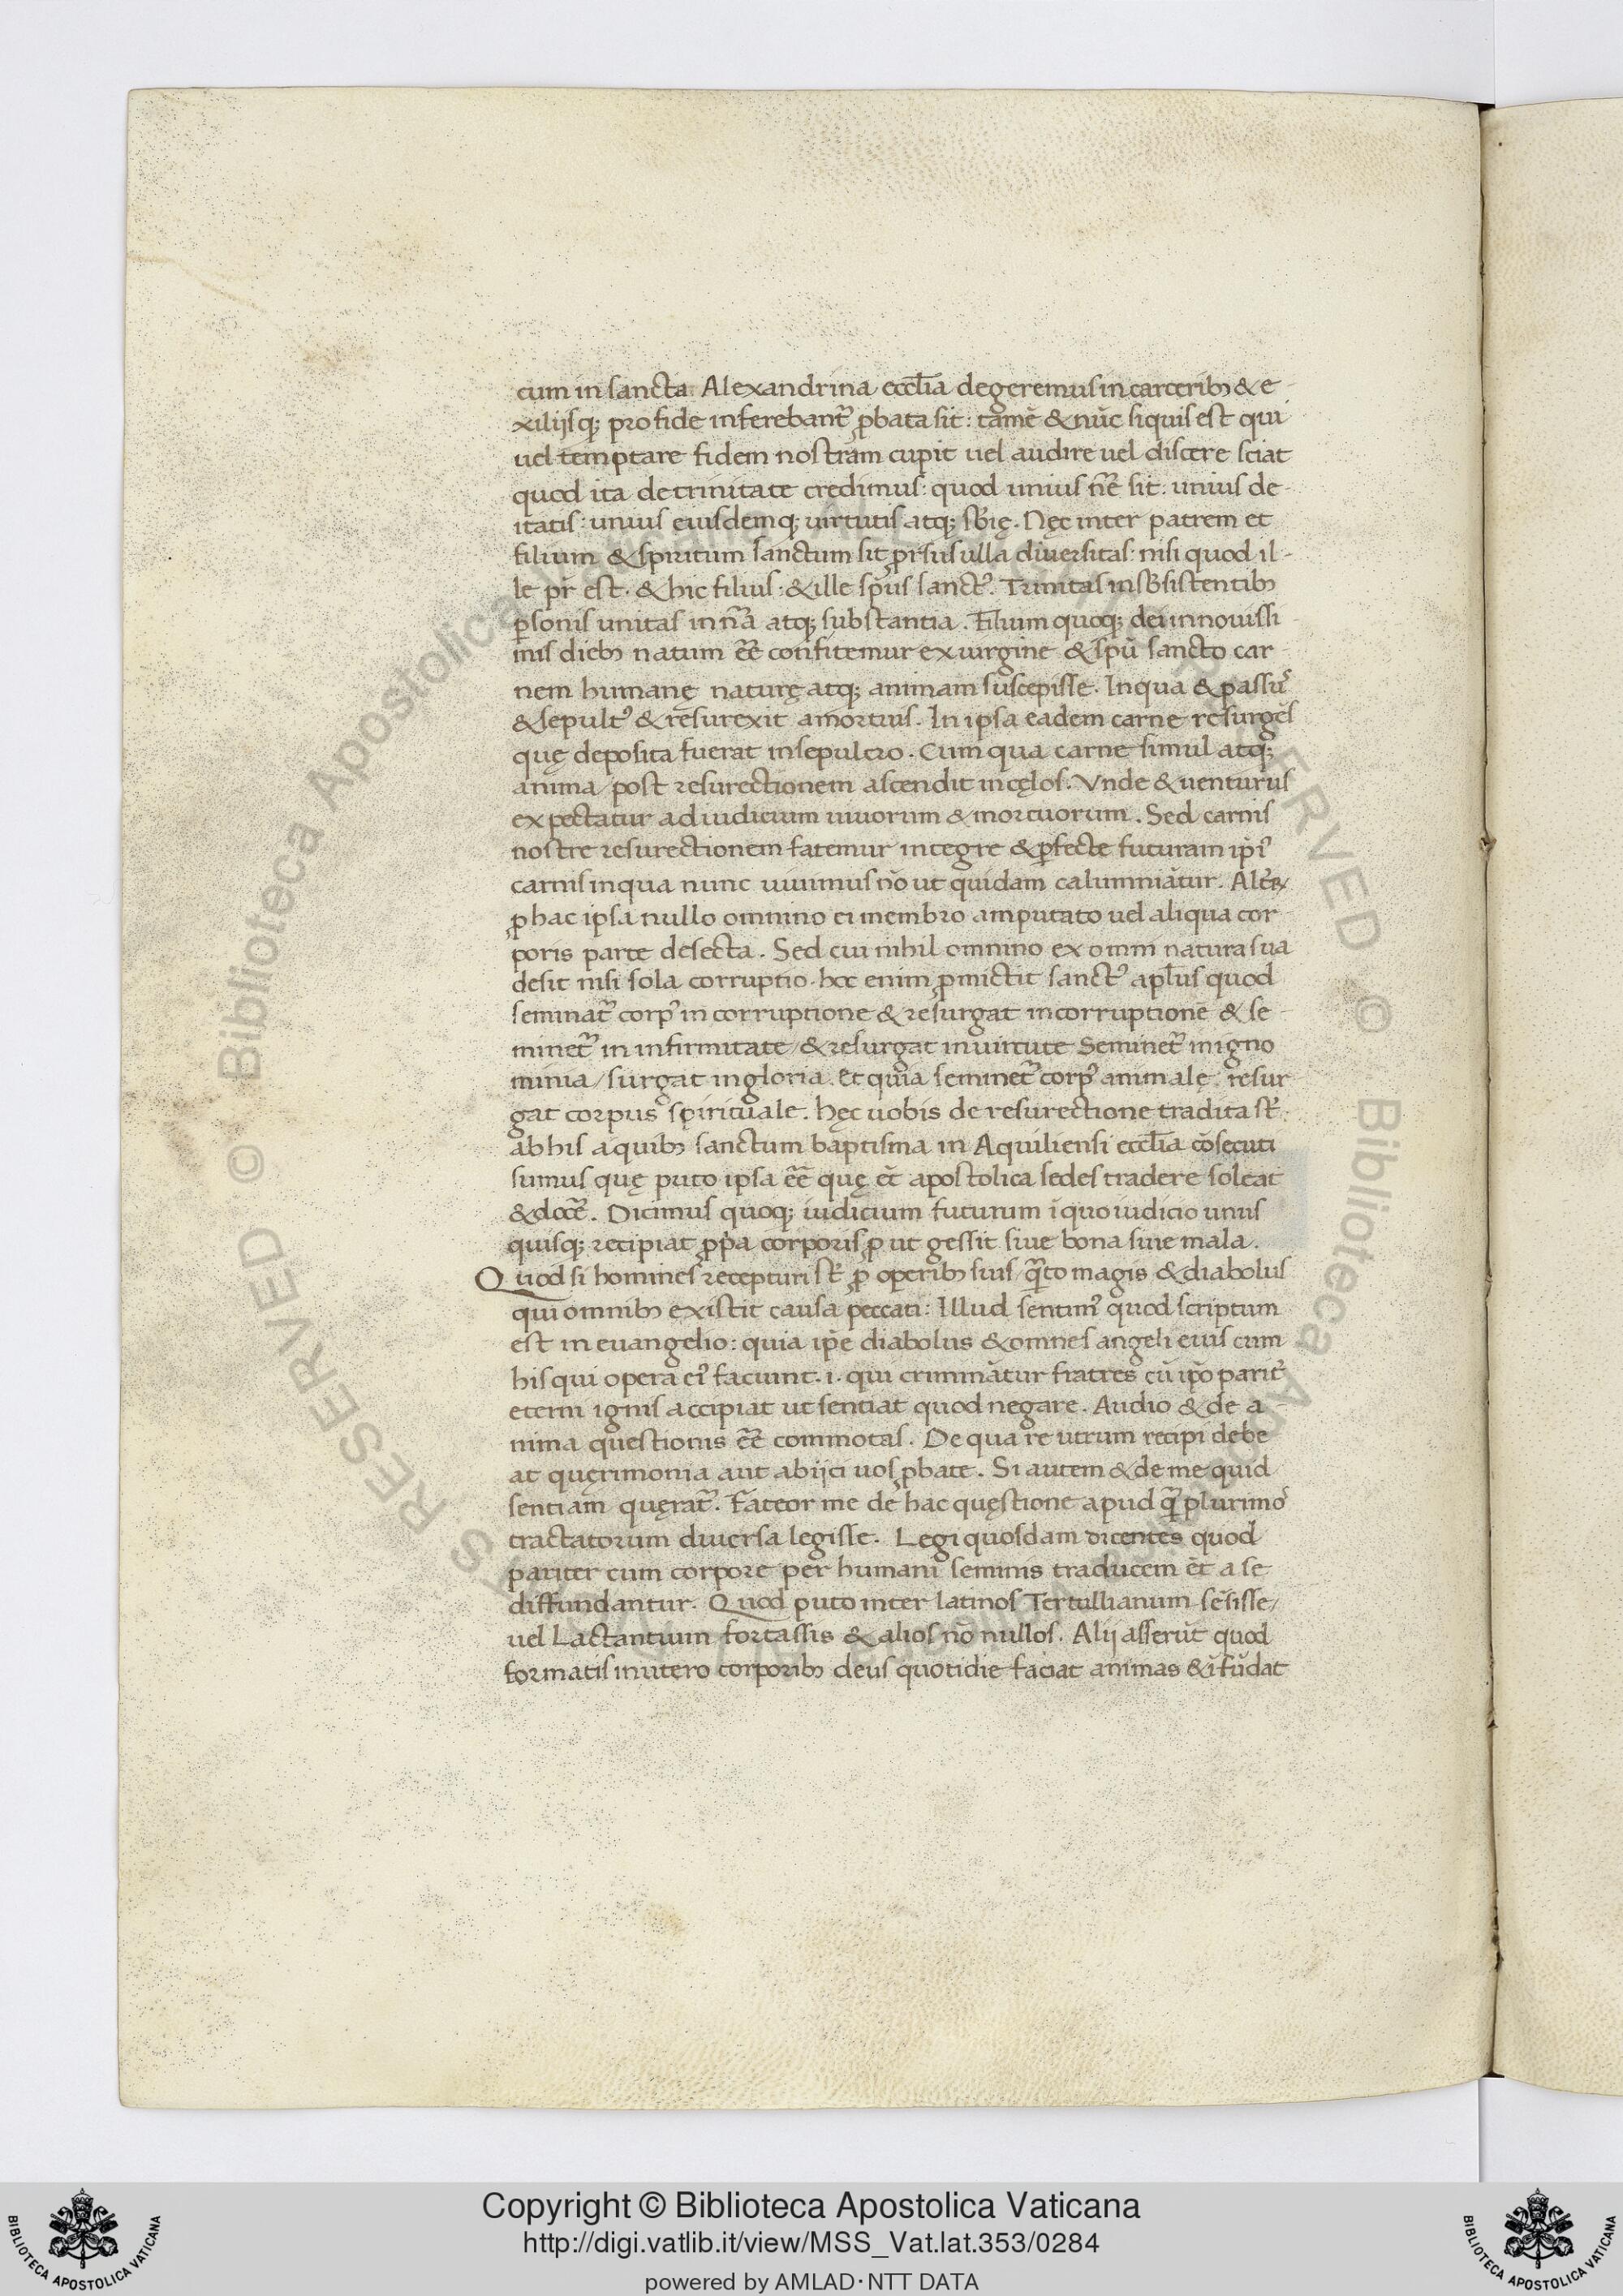 cum in sancta Alexandrina eccl̄ia degeremus in carceribꝫ & e-
xilijsq; pro fide inferebant᷑ ꝓbata sit: tamē & nūc siquis est qui
uel temptare fidem nostram cupit uel audire uel discere sciat
quod ita de trinitate credimus: quod unius nr̄ē sit: unius de-
itatis: unius eiusdemq; uirtutis atq; sb̄ię. Nęc inter patrem et
filium & spiritum sanctum sit ꝓrsus ulla diuersitas: nisi quod il-
le pr̄ est. & hic filius: & ille sp̄us sanctꝰ. Trinitas in sb̄sistentibꝫ
ꝑsonis unitas in nr̄ā atq; substantia. Filium quoq; dei in nouissi-
mis diebꝫ natum ēē confitemur ex uirgine & sp̄u sancto car-
nem humanę naturę atq; animam suscepisse. In qua & passꝰ
& sepultꝰ & resurexit amortuis. In ipsa eadem carne resurgēs
quę deposita fuerat in sepulcro. Cum qua carne simul atq;
anima / post resurectionem ascendit in cęlos. Vnde & uenturus
expectatur ad iudicium uiuorum & mortuorum. Sed carnis
nostre resurectionem fatemur integre & ꝑfecte futuram ip̄iꝰ
carnis in qua nunc uiuimus nō ut quidam calumniātur. Alt̄eꝝ
ꝓ hac ipsa nullo omnino ei membro amputato uel aliqua cor-
poris parte desecta. Sed cui nihil omnino ex omni natura sua
desit nisi sola corruptio. hoc enim ꝓmictit sanctꝰ apl̄us quod
seminat᷑ corpꝰ in corruptione & resurgat incorruptionē & se-
minet᷑ in infirmitate / & resurgat in uirtute Seminet᷑ in igno
minia / surgat in gloria. Et quia seminet᷑ corpꝰ animalę. resur
gat corpus spirituale. hęc uobis de resurectione tradita st̄.
ab his a quibꝫ sanctum baptisma in Aquiliensi eccl̄ia cōsecuti
sumus quę puto ipsa ēē quę et̄ apostolica sedes tradere soleat
& docē̄. Dicimus quoq; iudicium futurum ī quo iudicio unus
quisq; recipiat ꝓp̄a corporis ꝓ ut gessit siue bona siue mala.
Quod si homines recepturi st̄ ꝓ operibꝫ suis / q̄to magis & diabolus
qui omnibꝫ existit causa peccati: Illud sentimꝰ quod scriptum
est in euangelio: quia ip̄e diabolus & omnes angeli eius cum
his qui opera eiꝰ faciunt. i. qui criminātur fratres cū ip̄o parit̄
eterni ignis accipiat ut sentiat quod negare. Audio & de a-
nima questionis ēē commotas. De qua re utrum recipi debe
at quęrimonia aut abijci uos ꝓbate. Si autem & de me quid
sentiam quęrat᷑. Fateor me de hac quęstione apud q̄ꝫ plurimoꝰ
tractatorum diuersa legisse. Legi quosdam dicentes quod
pariter cum corpore per humani seminis traducem et̄ a se
diffundantur. Quod puto inter latinos Tertullianum sēsisse /
uel Lactantium fortassis & alios nō nullos. Alij asserūt quod
formatis in utero corporibꝫ deus quotidie faciat animas & īfūdat
Copyright © Biblioteca Apostolica Vaticana
http://digi.vatlib.it/view/MSS_Vat.lat.353/0284
powered by AMLAD·NTT DATA